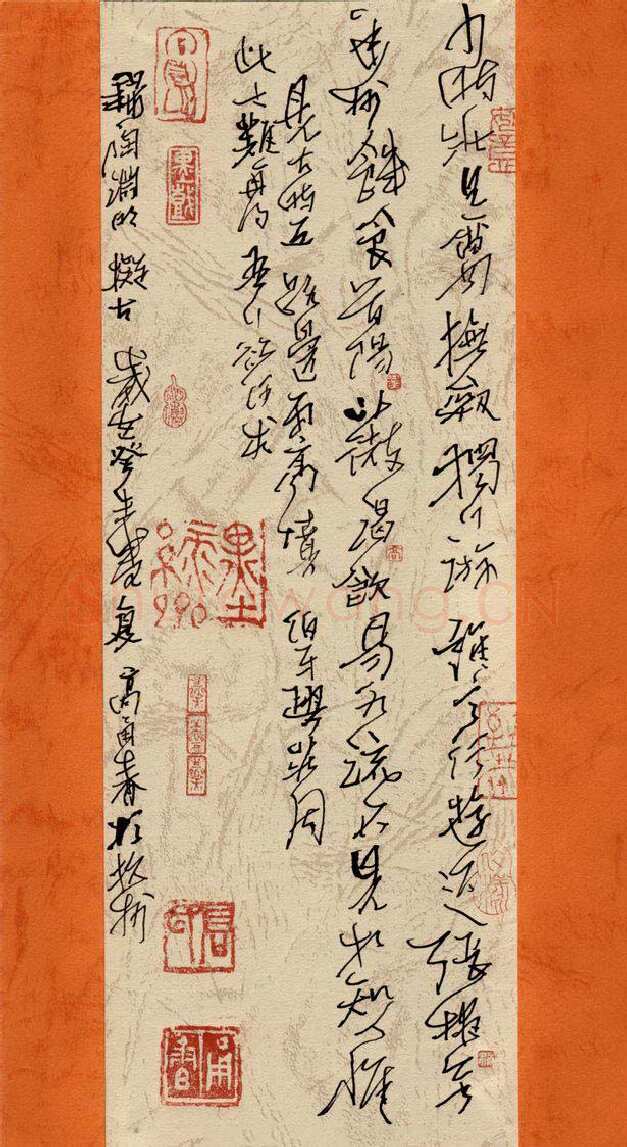 少時壯且厲撫劍獨行遊誰言行遊近張掖至
幽州飢食首陽薇渴飲易水流不見相知人惟
見古時丘路邊兩高墳伯牙與莊周
此士難再得吾行欲何求
陶淵明擬古歲在癸未夏高甬春於杭州